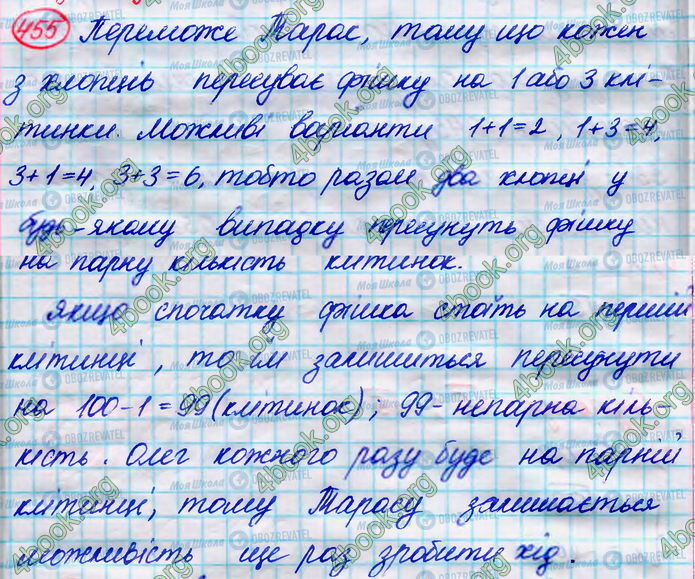 455 Переможе Тарас, тому що кожен
з хлопців пересуває фішку на 1 або 3 клі-
тинки. Можливі варіанти 1+1=2, 1+3=4,
3+1=4, 3+3=6, тобто разом два хлопці у
будь-якому випадку пересунуть фішку
на парну кількість клітинок.
Якщо спочатку фішка стоїть на першій
клітинці, то їм залишиться пересунути
на 100-1=99 (клітинок); 99- непарна кіль-
кість. Олег кожного разу буде на парній
клітинці, тому Тарасу залишається
можливість ще раз зробити хід.